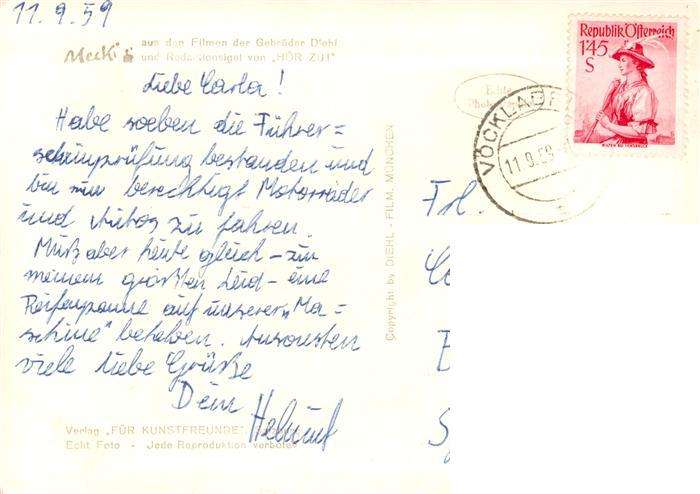 11.9.59
aus den Filmen der Gebrüder Diehl
Mecki
und Redaktionsigel von "HÖR ZU!"
Liebe Carla!
Habe soeben die Führer=
scheinprüfung bestanden und
bin nun berechtigt Motorräder
und Autos zu fahren.
Muß aber heute gleich – zu
meinem größten Leid – eine
Reifenpanne auf unserer „Ma=
schine" beheben. Ansonsten
viele liebe Grüße
Dein Helmut
Verlag „FÜR KUNSTFREUNDE"
Echt Foto - Jede Reproduktion verboten
Copyright by DIEHL - FILM, MÜNCHEN
Echte
VÖCKLABR
11.9.59
Republik Österreich
1'45
S
Frl.